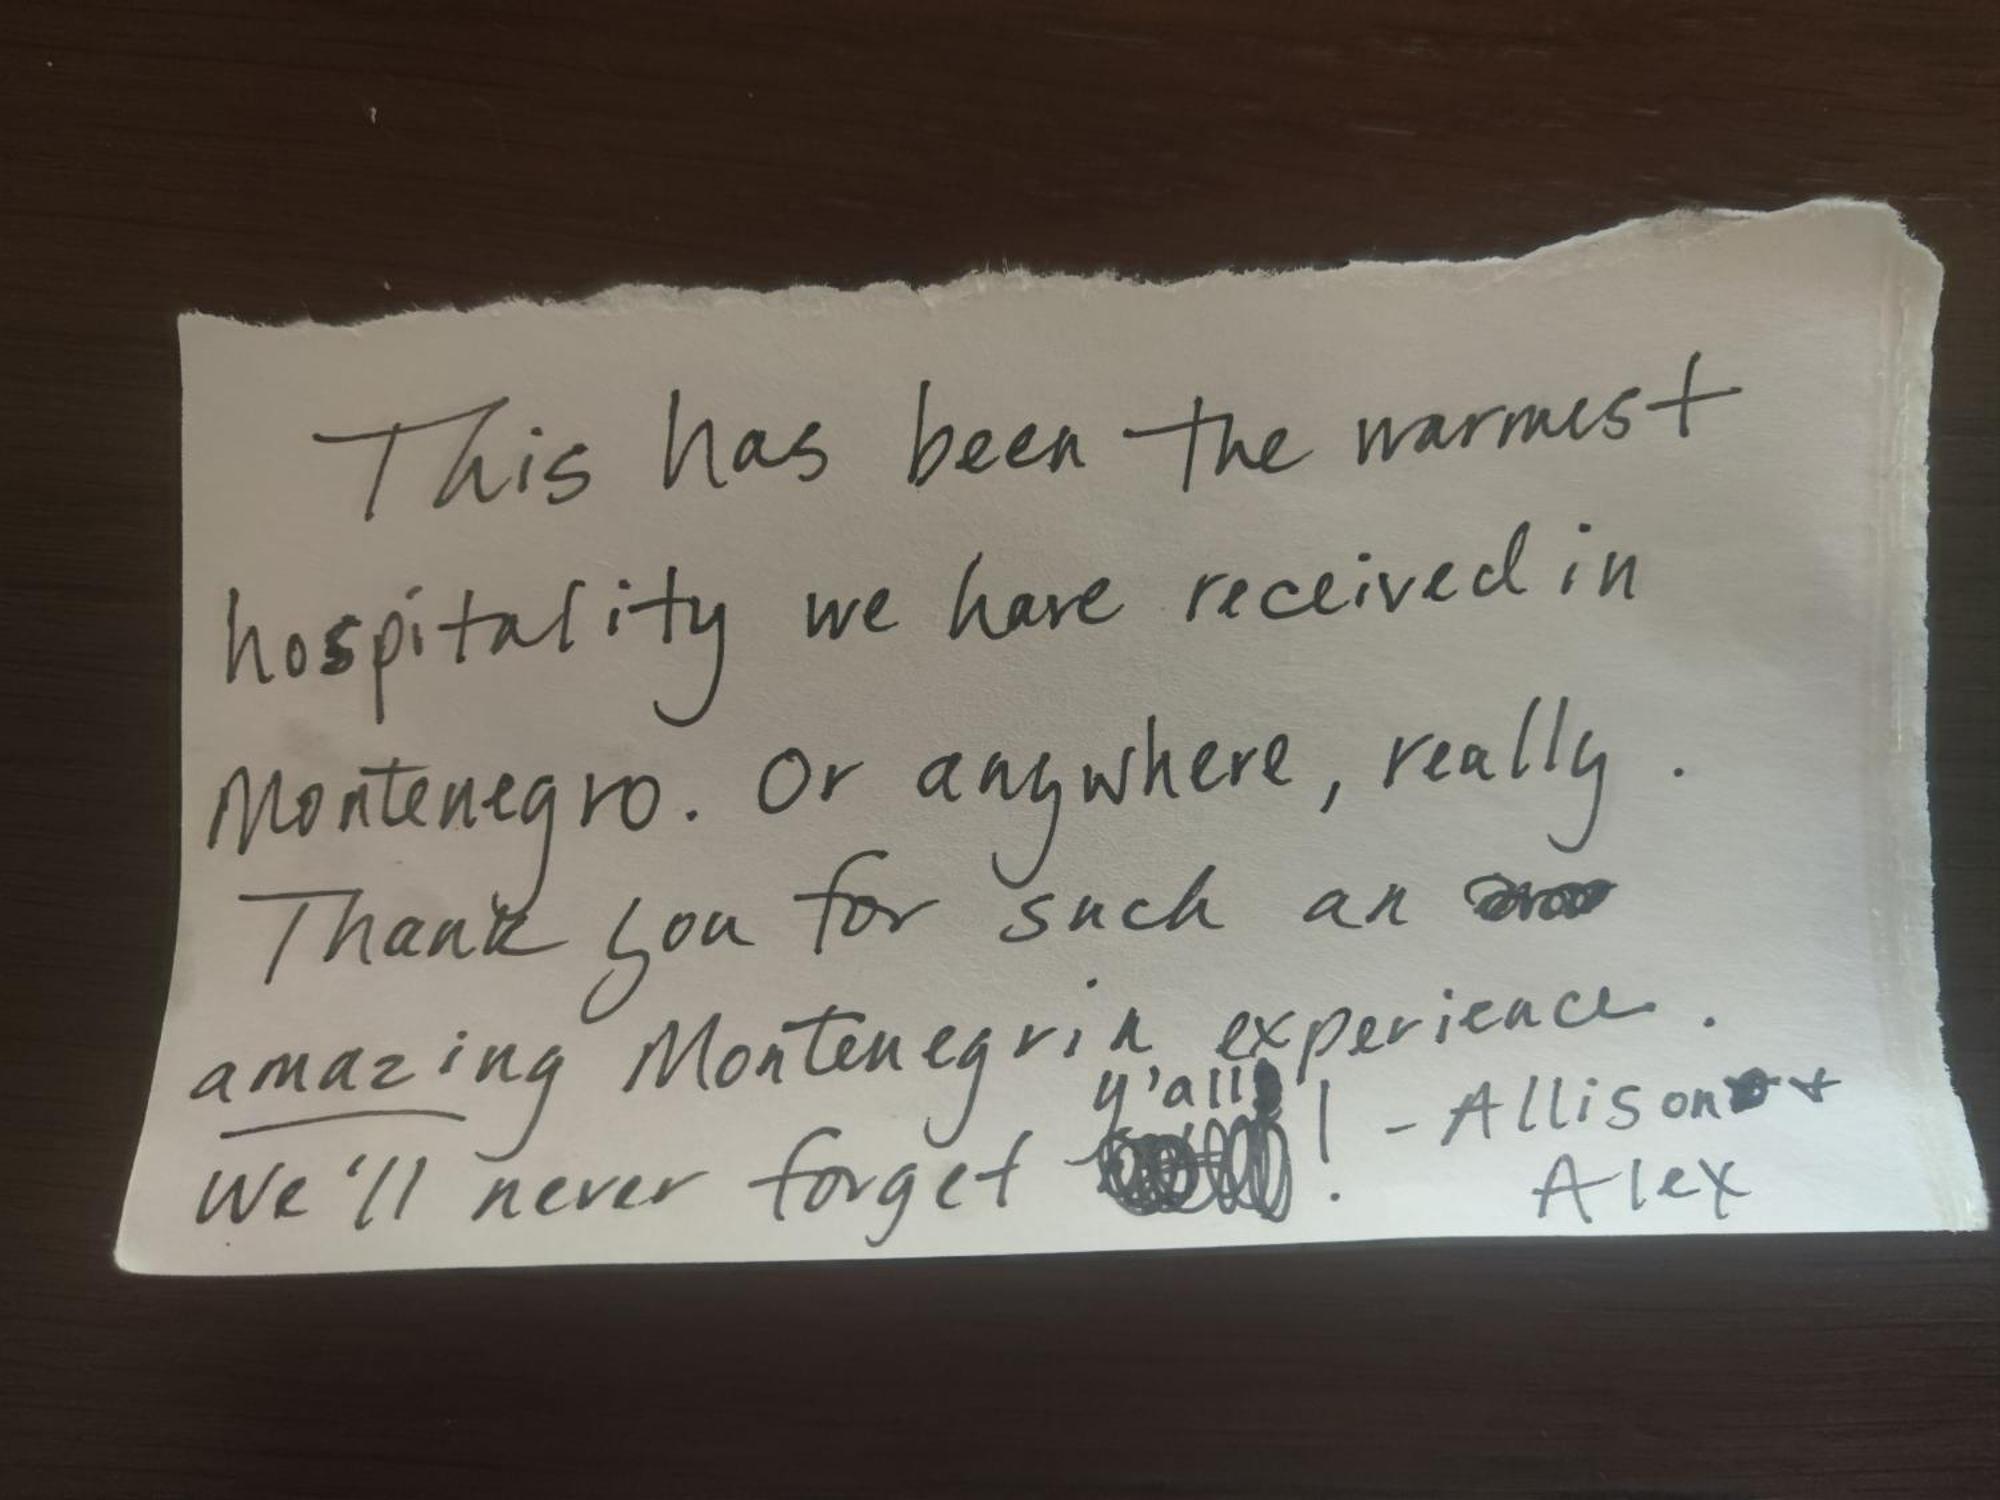 This has been the warmest
hospitality we have received in
Montenegro. Or anywhere, really.
Thank you for such an
amazing Montenegrin experience.
We'll never forget y'all! - Allison +
Alex